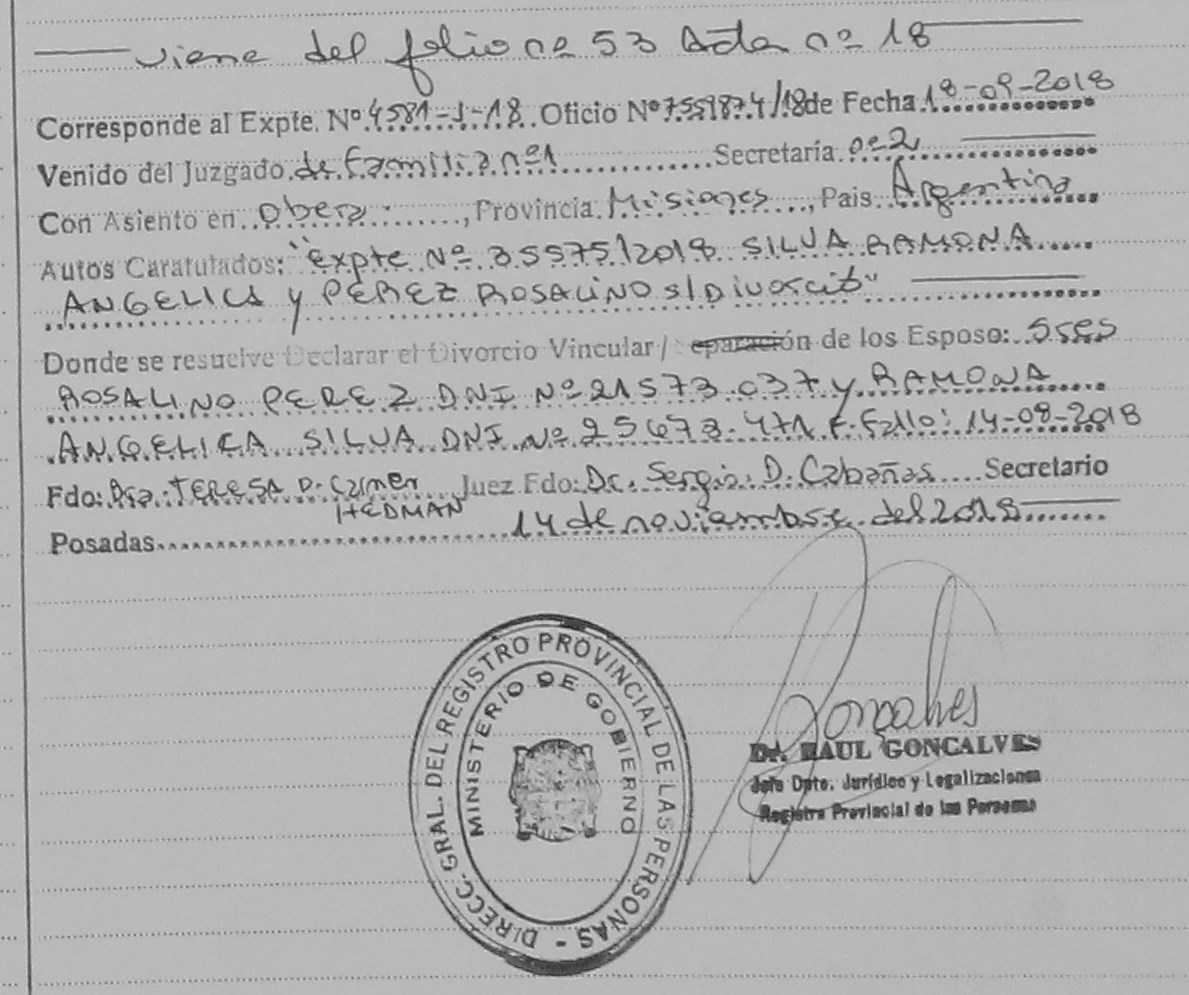 viene del folio nº 53 Acta nº 18
Corresponde al Expte. Nº 4581-J-18. Oficio Nº 7551874/18 de Fecha 18-09-2018
Venido del Juzgado de Familia nº1 Secretaría nº2
Con Asiento en Obera, Provincia Misiones, Pais Argentina
Autos Caratulados: "Expte Nº 35575/2018 SILVA RAMONA
ANGELICA y PEREZ ROSALINO s/Divorcio"
Donde se resuelve Declarar el Divorcio Vincular / Separación de los Esposo: Sres
ROSALINO PEREZ DNI Nº 21573.037 y RAMONA
ANGELICA SILVA DNI Nº 25673.471 F. Fallo: 14-08-2018
Fdo: Dra. TERESA D. Carmen Juez Fdo: Dr. Sergio D. Cabañas Secretario
HEDMAN
Posadas 14 de noviembre del 2018
DIRECC. GRAL. DEL REGISTRO PROVINCIAL DE LAS PERSONAS -
MINISTERIO DE GOBIERNO
Goncalves
Dr. RAUL GONCALVES
Jefe Dpto. Jurídico y Legalizaciones
Registro Provincial de las Personas